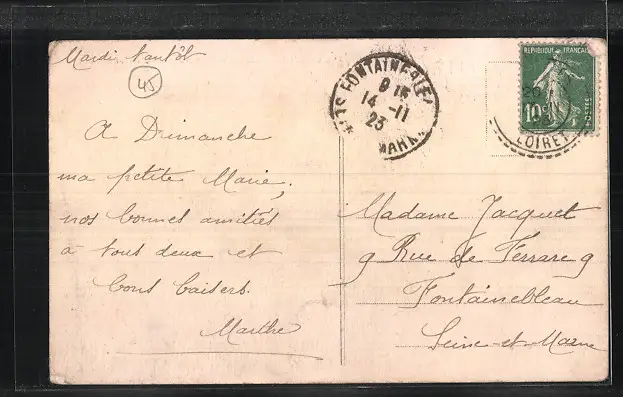 Mardi tantôt
45
A Dimanche
ma petite Marie,
nos bonnes amitiés
à tous deux et
bons baisers.
Marthe
FONTAINEBLEAU
14 -11
23
REPUBLIQUE FRANÇAISE
10c
POSTES
LOIRET
Madame Jacquet
9 Rue de Ferrare 9
Fontainebleau
Seine-et-Marne